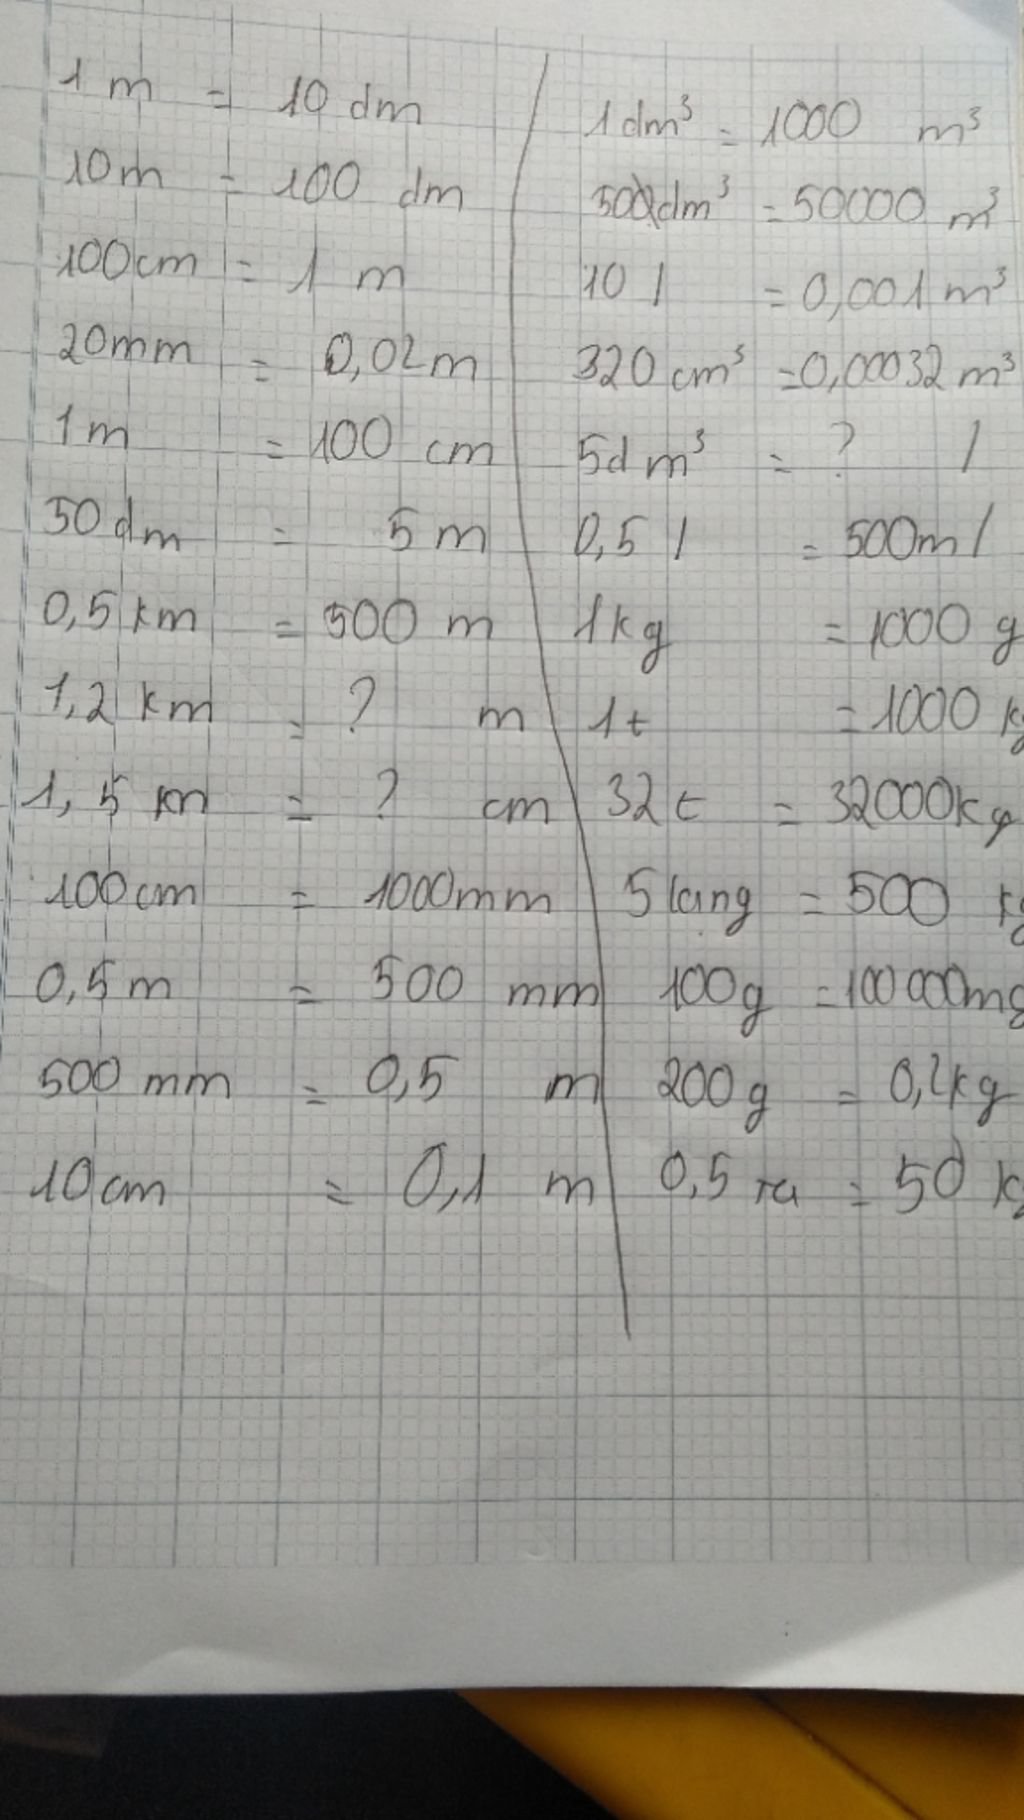 1 m = 10 dm
10m = 100 dm
100cm = 1 m
20mm = 0,02m
1m = 100 cm
50dm = 5 m
0,5 km = 500 m
1,2 km = ? m
1,5 km = ? cm
100cm = 1000mm
0,5m = 500 mm
500 mm = 0,5 m
10cm = 0,1 m
1dm³ = 1000 m³
dm³ = 50000 m³
10 l = 0,001m³
320 cm³ = 0,00032m³
5dm³ = ? l
0,5 l = 500ml
1kg = 1000 g
1t = 1000 k
32t = 32000kg
5 = 500 kg
100g = 100000mg
200g = 0,2kg
0,5 = 50 k